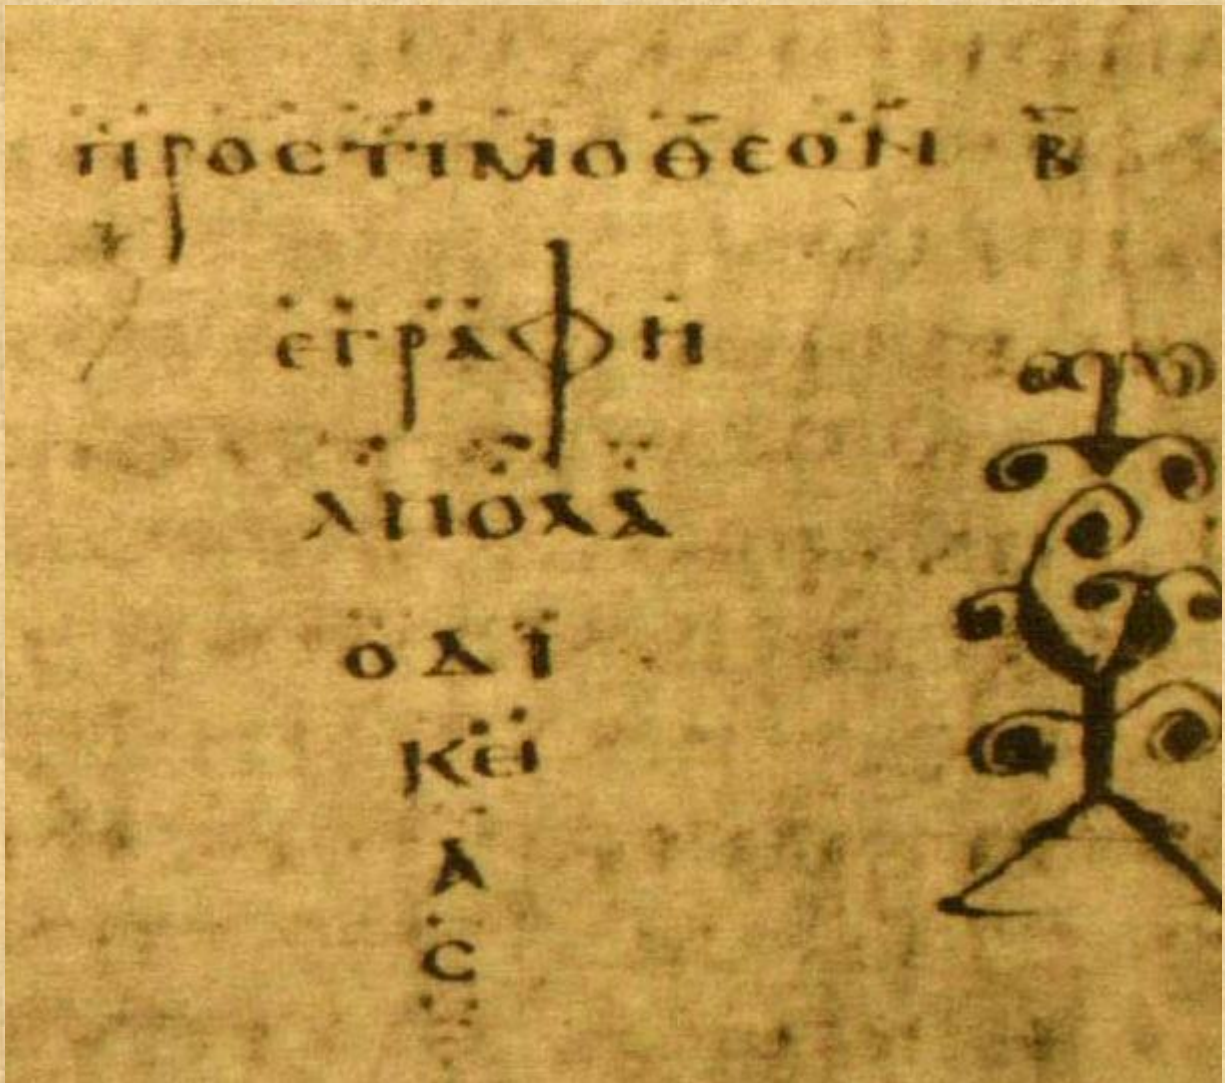 ΠΡΟСΤΙΜΟΘΕΟΝ Β̄
ΕΓΡΑΦΗ
ΑΠΟΛΑ
ΟΔΙ
ΚΕΙ
Α
С